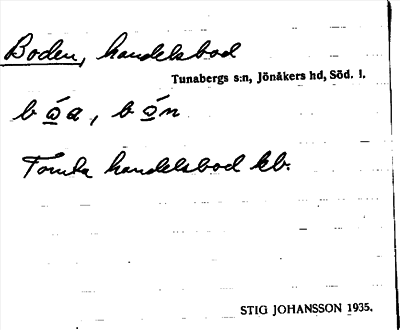 Boden, handelsbod
Tunabergs s:n, Jönåkers hd, Söd. l.
b ώ a, b ó̲ n
Tomta handelsbod kb.
STIG JOHANSSON 1935.